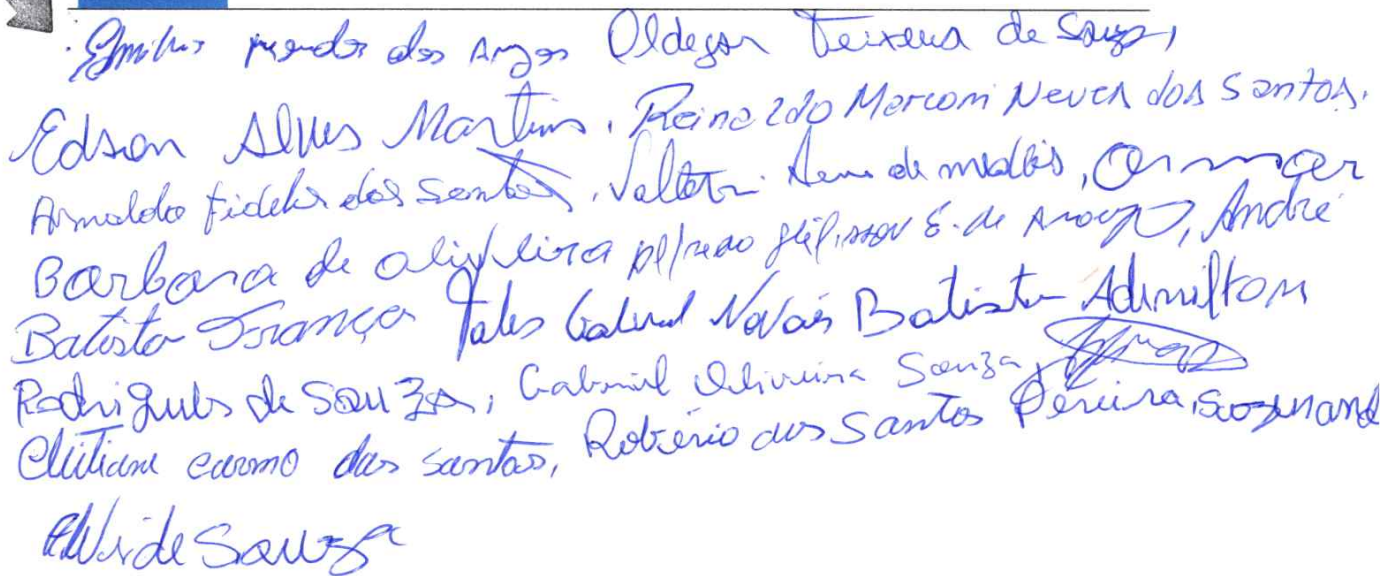 dos Anjos Oldegar Teixeira de Souza,
Edson Alves Martins, Reinaldo Marconi Neves dos Santos.
Arnaldo Fideles dos Santos, de medeiros, Osmar
Barbosa de oliveira E. de Araujo, André
Batista França Tales Gabriel Novais Batista Admilton
Rodrigues de Souza, Gabriel Oliveira Souza,
carmo dos santos, Robério dos Santos Pereira,
de Souza